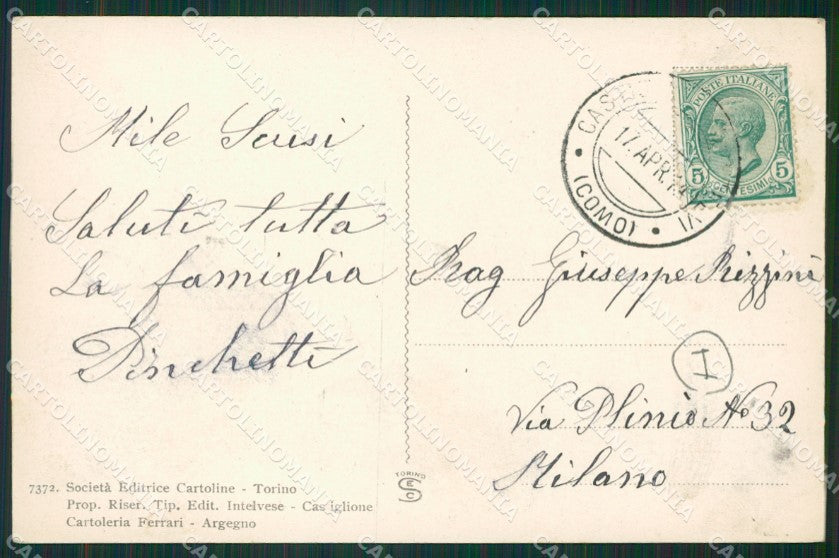 Mile Scusi
Saluti tutta
La famiglia
Pinchetti
7372. Società Editrice Cartoline - Torino
Prop. Riser. Tip. Edit. Intelvese - Castiglione
Cartoleria Ferrari - Argegno
TORINO
SEC
POSTE ITALIANE
5 5
CENTESIMI
17. APR.
(COMO)
Rag Giuseppe Rizzini
I
Via Plinio No 32
Milano
CARTOLINOMANIA